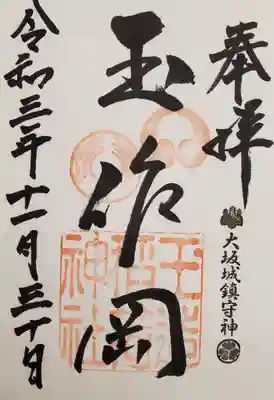 奉拝
大坂城鎮守神
玉作岡
玉造
稲荷
神社
令和三年十一月三十日